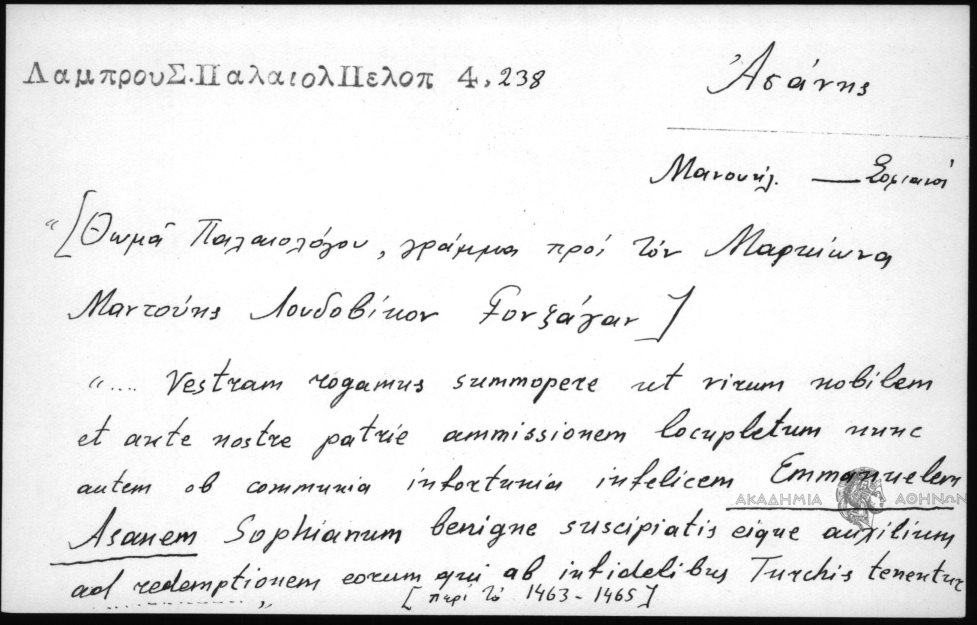 ΛαμπρουΣ.ΠαλαιολΠελοπ 4,238
Ἀσάνης
Μανουήλ. — Σοφιανό
"[Θωμᾶ Παλαιολόγου, γράμμα πρός τόν Μαρκίωνα
Μαντούης Λουδοβίκον Γονζάγαν]
".... Vestram rogamus summopere ut virum nobilem
et ante nostre patrie ammissionem locupletum nunc
autem ob communia infortunia infelicem Emmanuelem
ΑΚΑΔΗΜΙΑ ΑΘΗΝΩΝ
Asanem Sophianum benigne suscipiatis eique auxilium
ad redemptionem eorum qui ab infidelibus Turchis tenentur
.........." [περί τό 1463-1465]